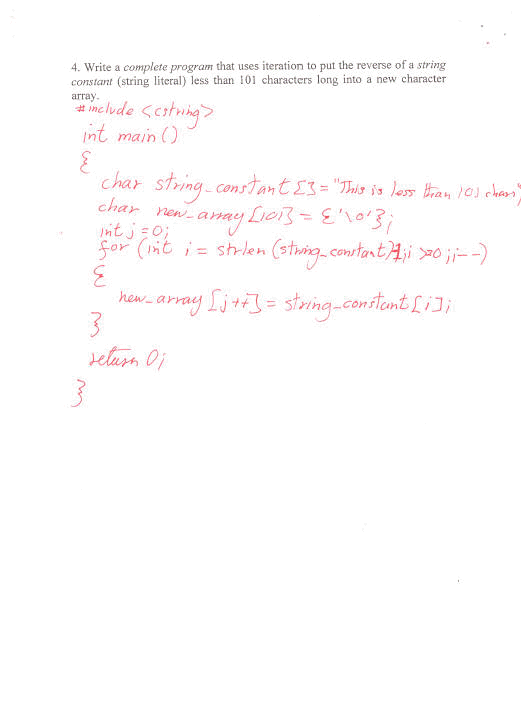 4. Write a complete program that uses iteration to put the reverse of a string
constant (string literal) less than 101 characters long into a new character
array.
#include <cstring>
int main()
{
char string_constant[]="This is less than 101 chars";
char new_array[101] = {'\0'};
int j=0;
for (int i = strlen (string_constant)-1;i>=0;i--)
{
new_array[j++] = string_constant[i];
}
return 0;
}